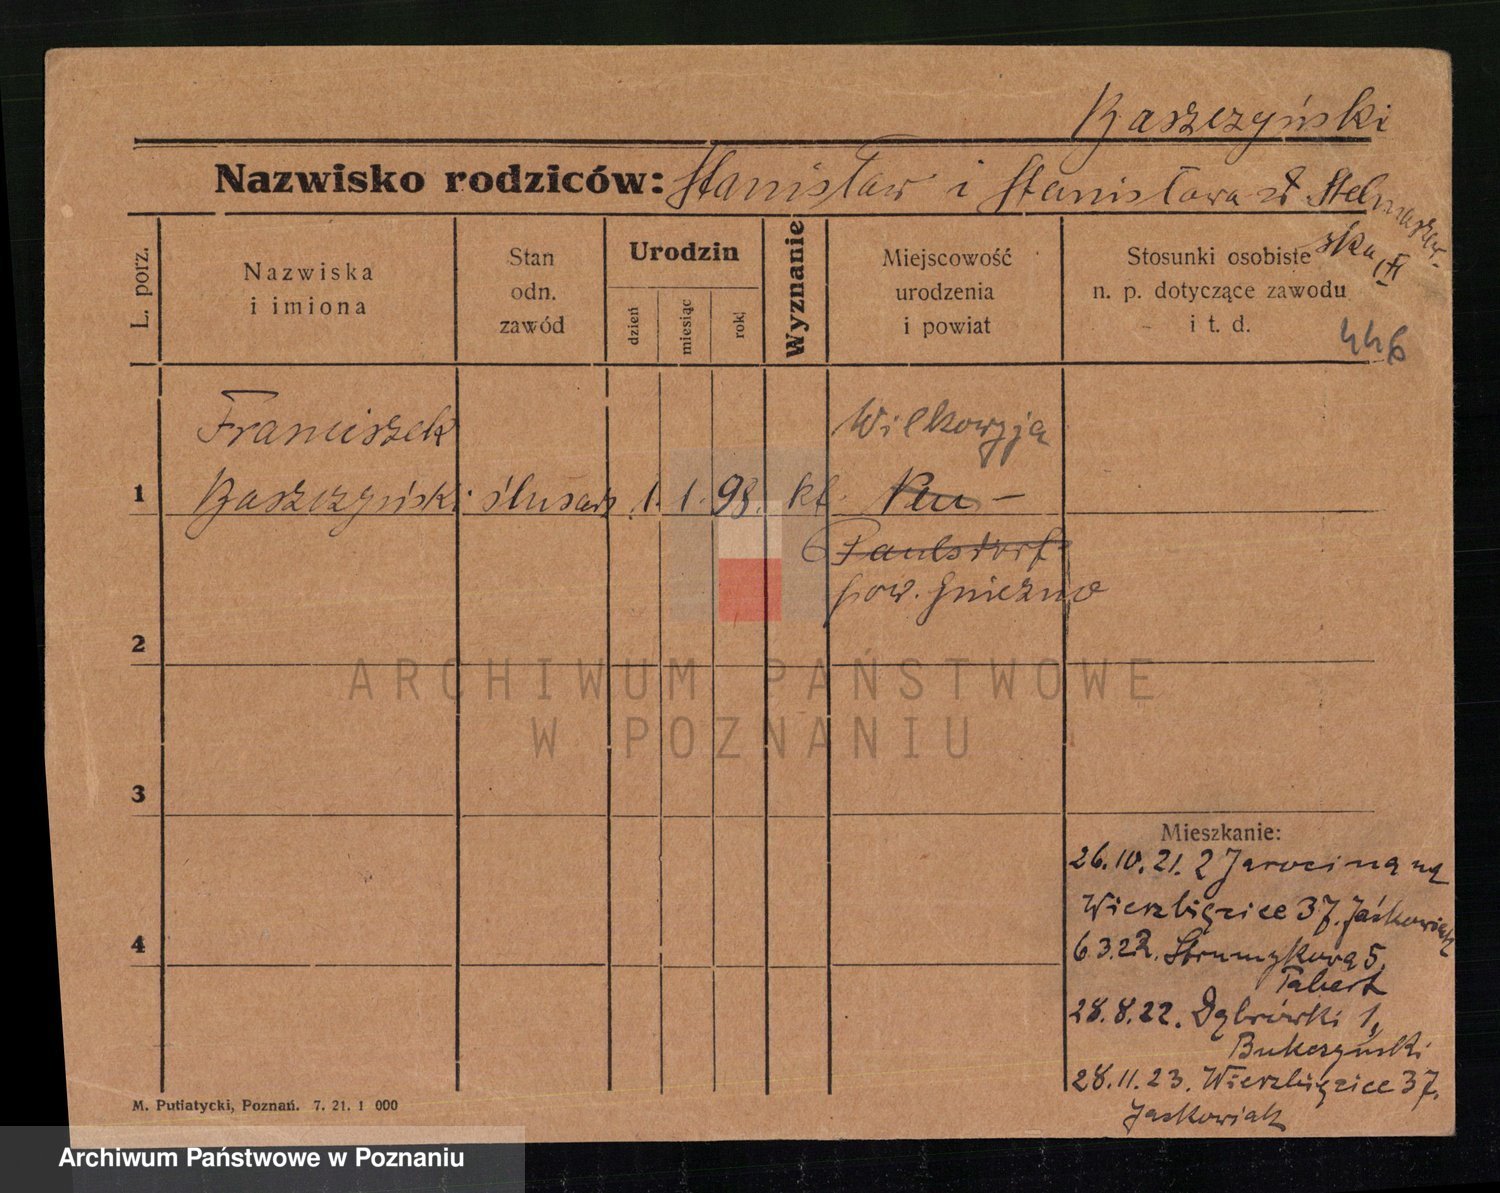 Baszczyński
Nazwisko rodziców: Stanisław i Stanisława zd Stelmaszew-
ska
L. porz.
Nazwiska
i imiona
Stan
odn.
zawód
Urodzin
dzień
miesiąc
rok
Wyznanie
Miejscowość
urodzenia
i powiat
Stosunki osobiste
n. p. dotyczące zawodu
i t. d.
446
Franciszek
Wilkowyja
1 Baszczyński ślusarz 1. 1. 98. kt. Neu-
Paulsdorf
pow. Gniezno
2
3
4
Mieszkanie:
26.10.21. 2 Jarocina na
Wierzbięcice 37. Jaśkowiak
6.3.22. Strumykowa 5,
Tabert
28.8.22. Dąbrówki 1,
Bukczyński
28.11.23. Wierzbięcice 37.
Jaskowiak
M. Putiatycki, Poznań. 7. 21. 1 000
ARCHIWUM PAŃSTWOWE
W POZNANIU
Archiwum Państwowe w Poznaniu